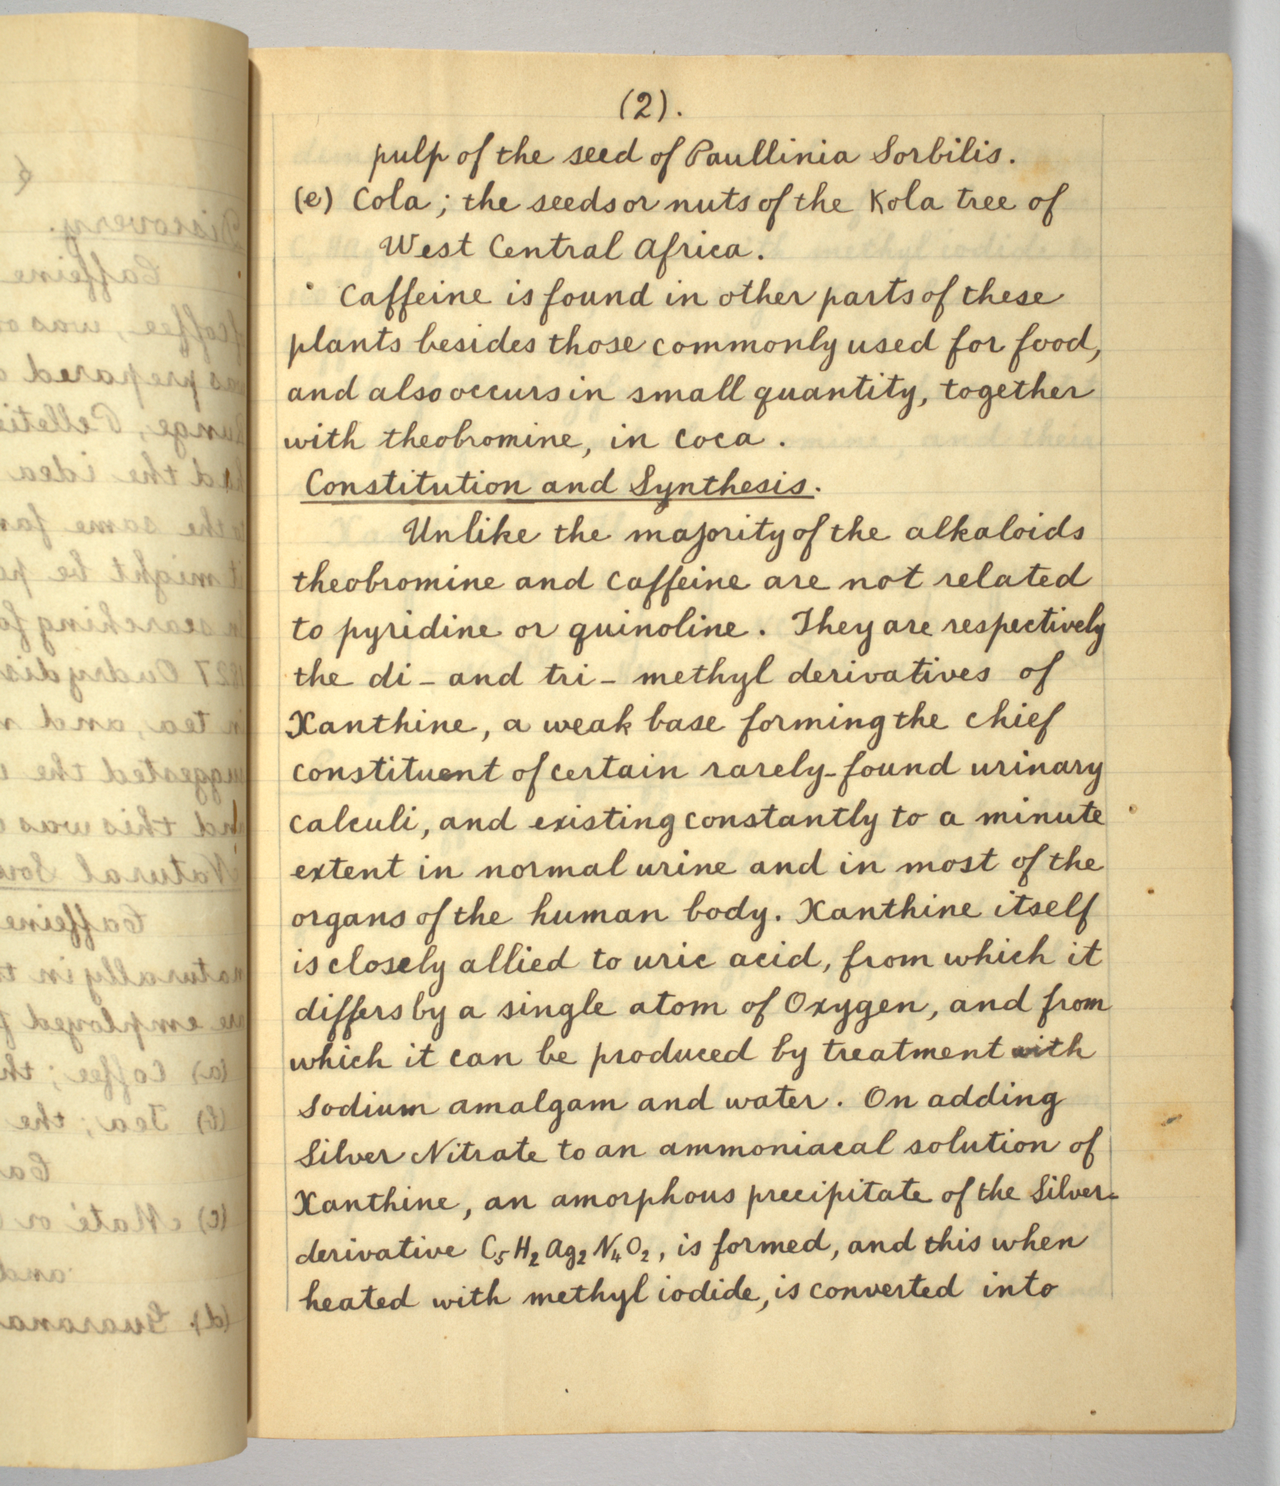 (2).
pulp of the seed of Paullinia Sorbilis.
(e) Cola; the seeds or nuts of the Kola tree of
West Central Africa.
Caffeine is found in other parts of these
plants besides those commonly used for food,
and also occurs in small quantity, together
with theobromine, in coca.
Constitution and Synthesis.
Unlike the majority of the alkaloids
theobromine and caffeine are not related
to pyridine or quinoline. They are respectively
the di- and tri- methyl derivatives of
Xanthine, a weak base forming the chief
constituent of certain rarely-found urinary
calculi, and existing constantly to a minute
extent in normal urine and in most of the
organs of the human body. Xanthine itself
is closely allied to uric acid, from which it
differs by a single atom of Oxygen, and from
which it can be produced by treatment with
Sodium amalgam and water. On adding
Silver Nitrate to an ammoniacal solution of
Xanthine, an amorphous precipitate of the Silver-
derivative C₅H₂Ag₂N₄O₂, is formed, and this when
heated with methyl iodide, is converted into
Discovery.
Caffeine
coffee, was
prepared
Runge, Pelletie
had the idea
the same
it might be
in searching
1827 Oudry
in tea, and
suggested the
and this was
Natural
Caffeine
naturally in
are employed
(a) Coffee; th
(b) Tea; the
(c) Maté or
and
(d) Guarana